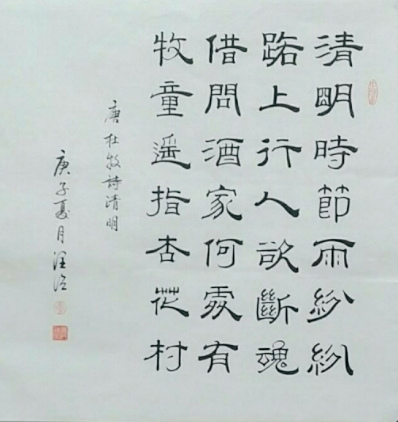 清明時節雨紛紛
路上行人欲斷魂
借問酒家何處有
牧童遥指杏花村
唐杜牧詩清明
庚子夏月